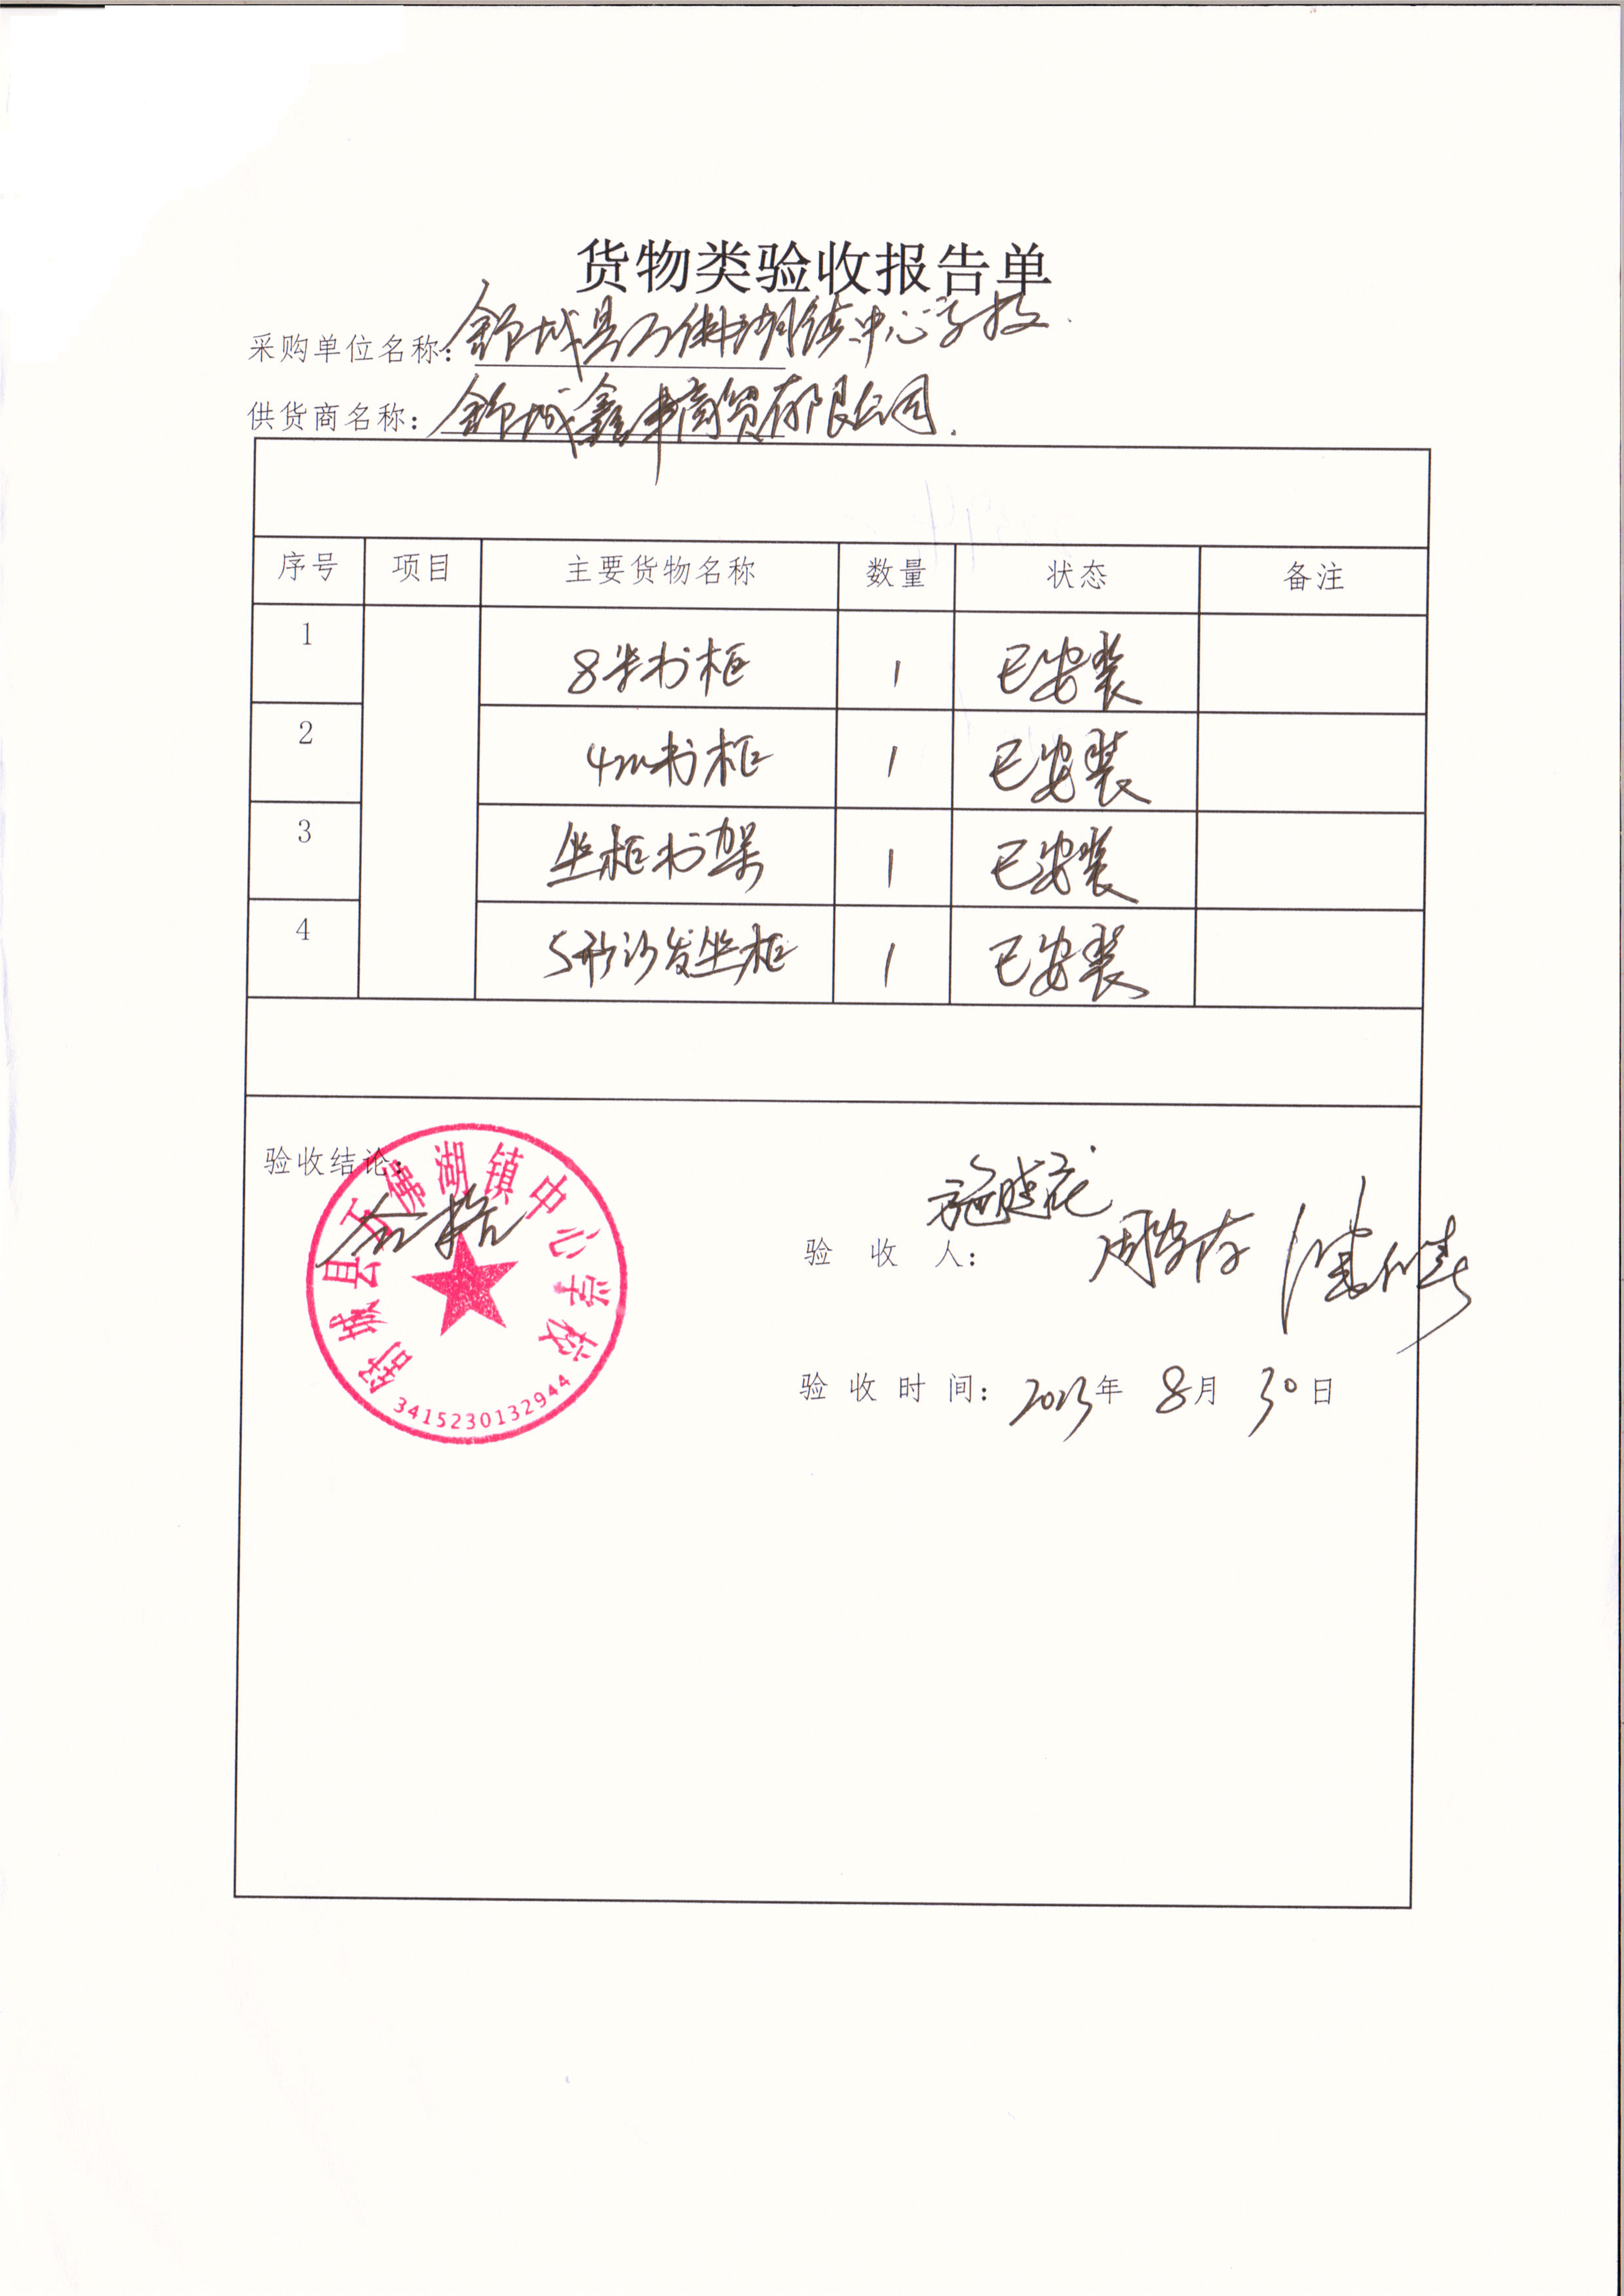 货物类验收报告单
采购单位名称：舒城县万佛湖镇中心学校.
供货商名称：舒城鑫丰商贸有限公司.
序号 项目 主要货物名称 数量 状态 备注
1 8米书柜 1 已安装
2 4m书柜 1 已安装
3 坐柜书架 1 已安装
4 S形沙发坐柜 1 已安装
验收结论：
合格
舒城县万佛湖镇中心学校
3415230132944
验 收 人：
验收时间：2023年 8月 30日